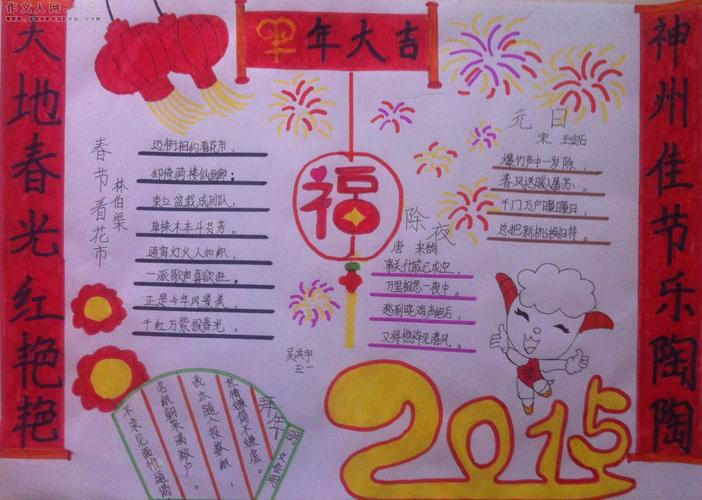 作文人网
www.zuowenren.com
天地春光红艳艳
羊年大吉
神州佳节乐陶陶
春节看花市
林伯栗
迈街相约看花市，
却倚骑楼似画廊；
束立盆栽成列队，
草株木本斗芬芳。
通宵灯火人如织，
一派歌声喜欲狂。
正是今年风景美，
千红万紫报春光。
福
元日
宋 王安石
爆竹声中一岁除，
春风送暖入屠苏。
千门万户曈曈日，
总把新桃换旧符。
除夜
唐 来鹄
事关休戚已成空，
万里相思一夜中。
愁到晓鸡声绝后，
又将憔悴见春风。
吴洪宇
五一
拜年
明 文征明
不求见面惟通谒，
名纸朝来满敝庐。
我亦随人投数纸，
世情嫌简不嫌虚。
2015